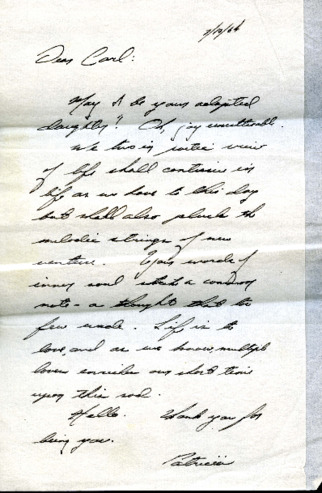 Dear Carl:
May I be your adopted
daughter? Oh, joy unutterable.
We two in poetic view
of life shall continue in
life as we have to this day
but shall also pluck the
melodic strings of new
venture. Your words of
inner soul a
note - a thought that the
few made. Life is to
love, and as we know, multiple
loves our short time
upon this sod.
Hello. Thank you for
being you.
Patricia